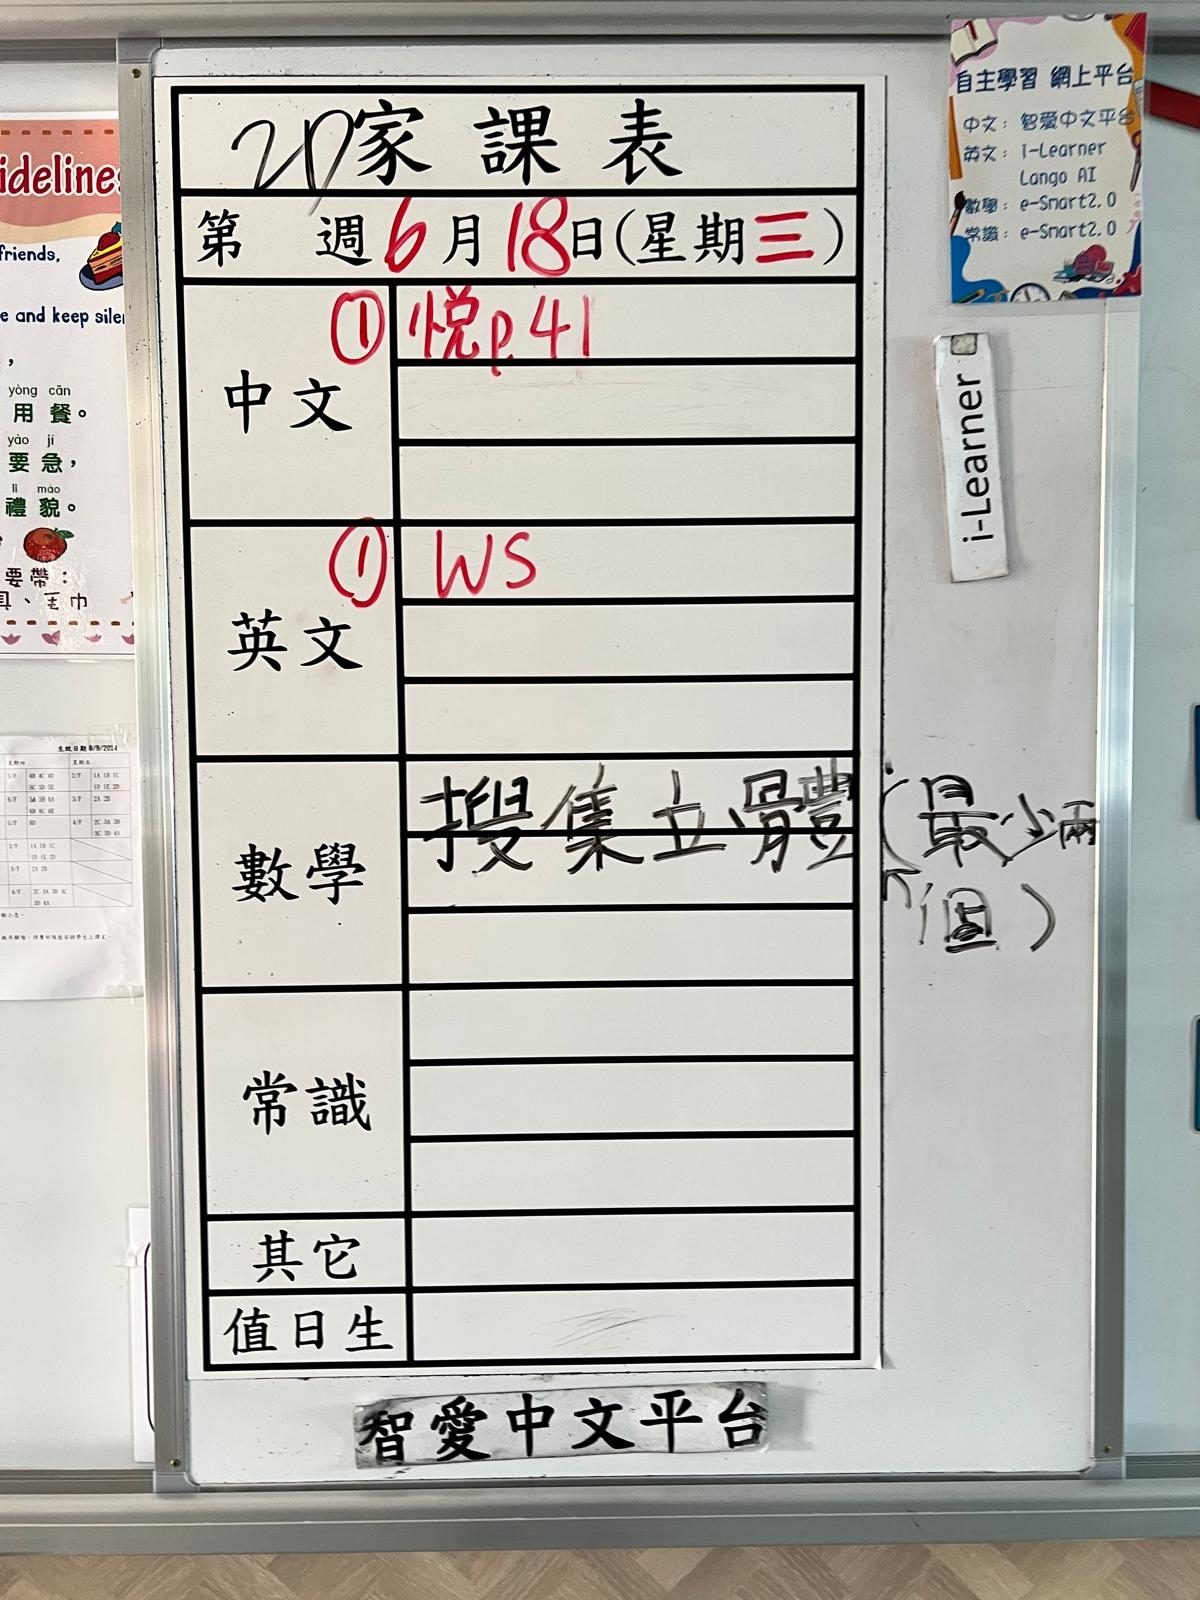 2D家課表
第 週6月18日(星期三)
中文
① 悅p.41
英文
① WS
數學
搜集立體(最少兩
個)
常識
其它
值日生
智愛中文平台
自主學習 網上平台
中文: 智愛中文平台
英文: i-Learner
Lango AI
數學: e-Smart2.0
常識: e-Smart2.0
i-Learner
idelines
friends,
e and keep siler
,
yòng cān
用餐。
yào jí
要急,
lǐ mào
禮貌。
要帶:
具、毛巾